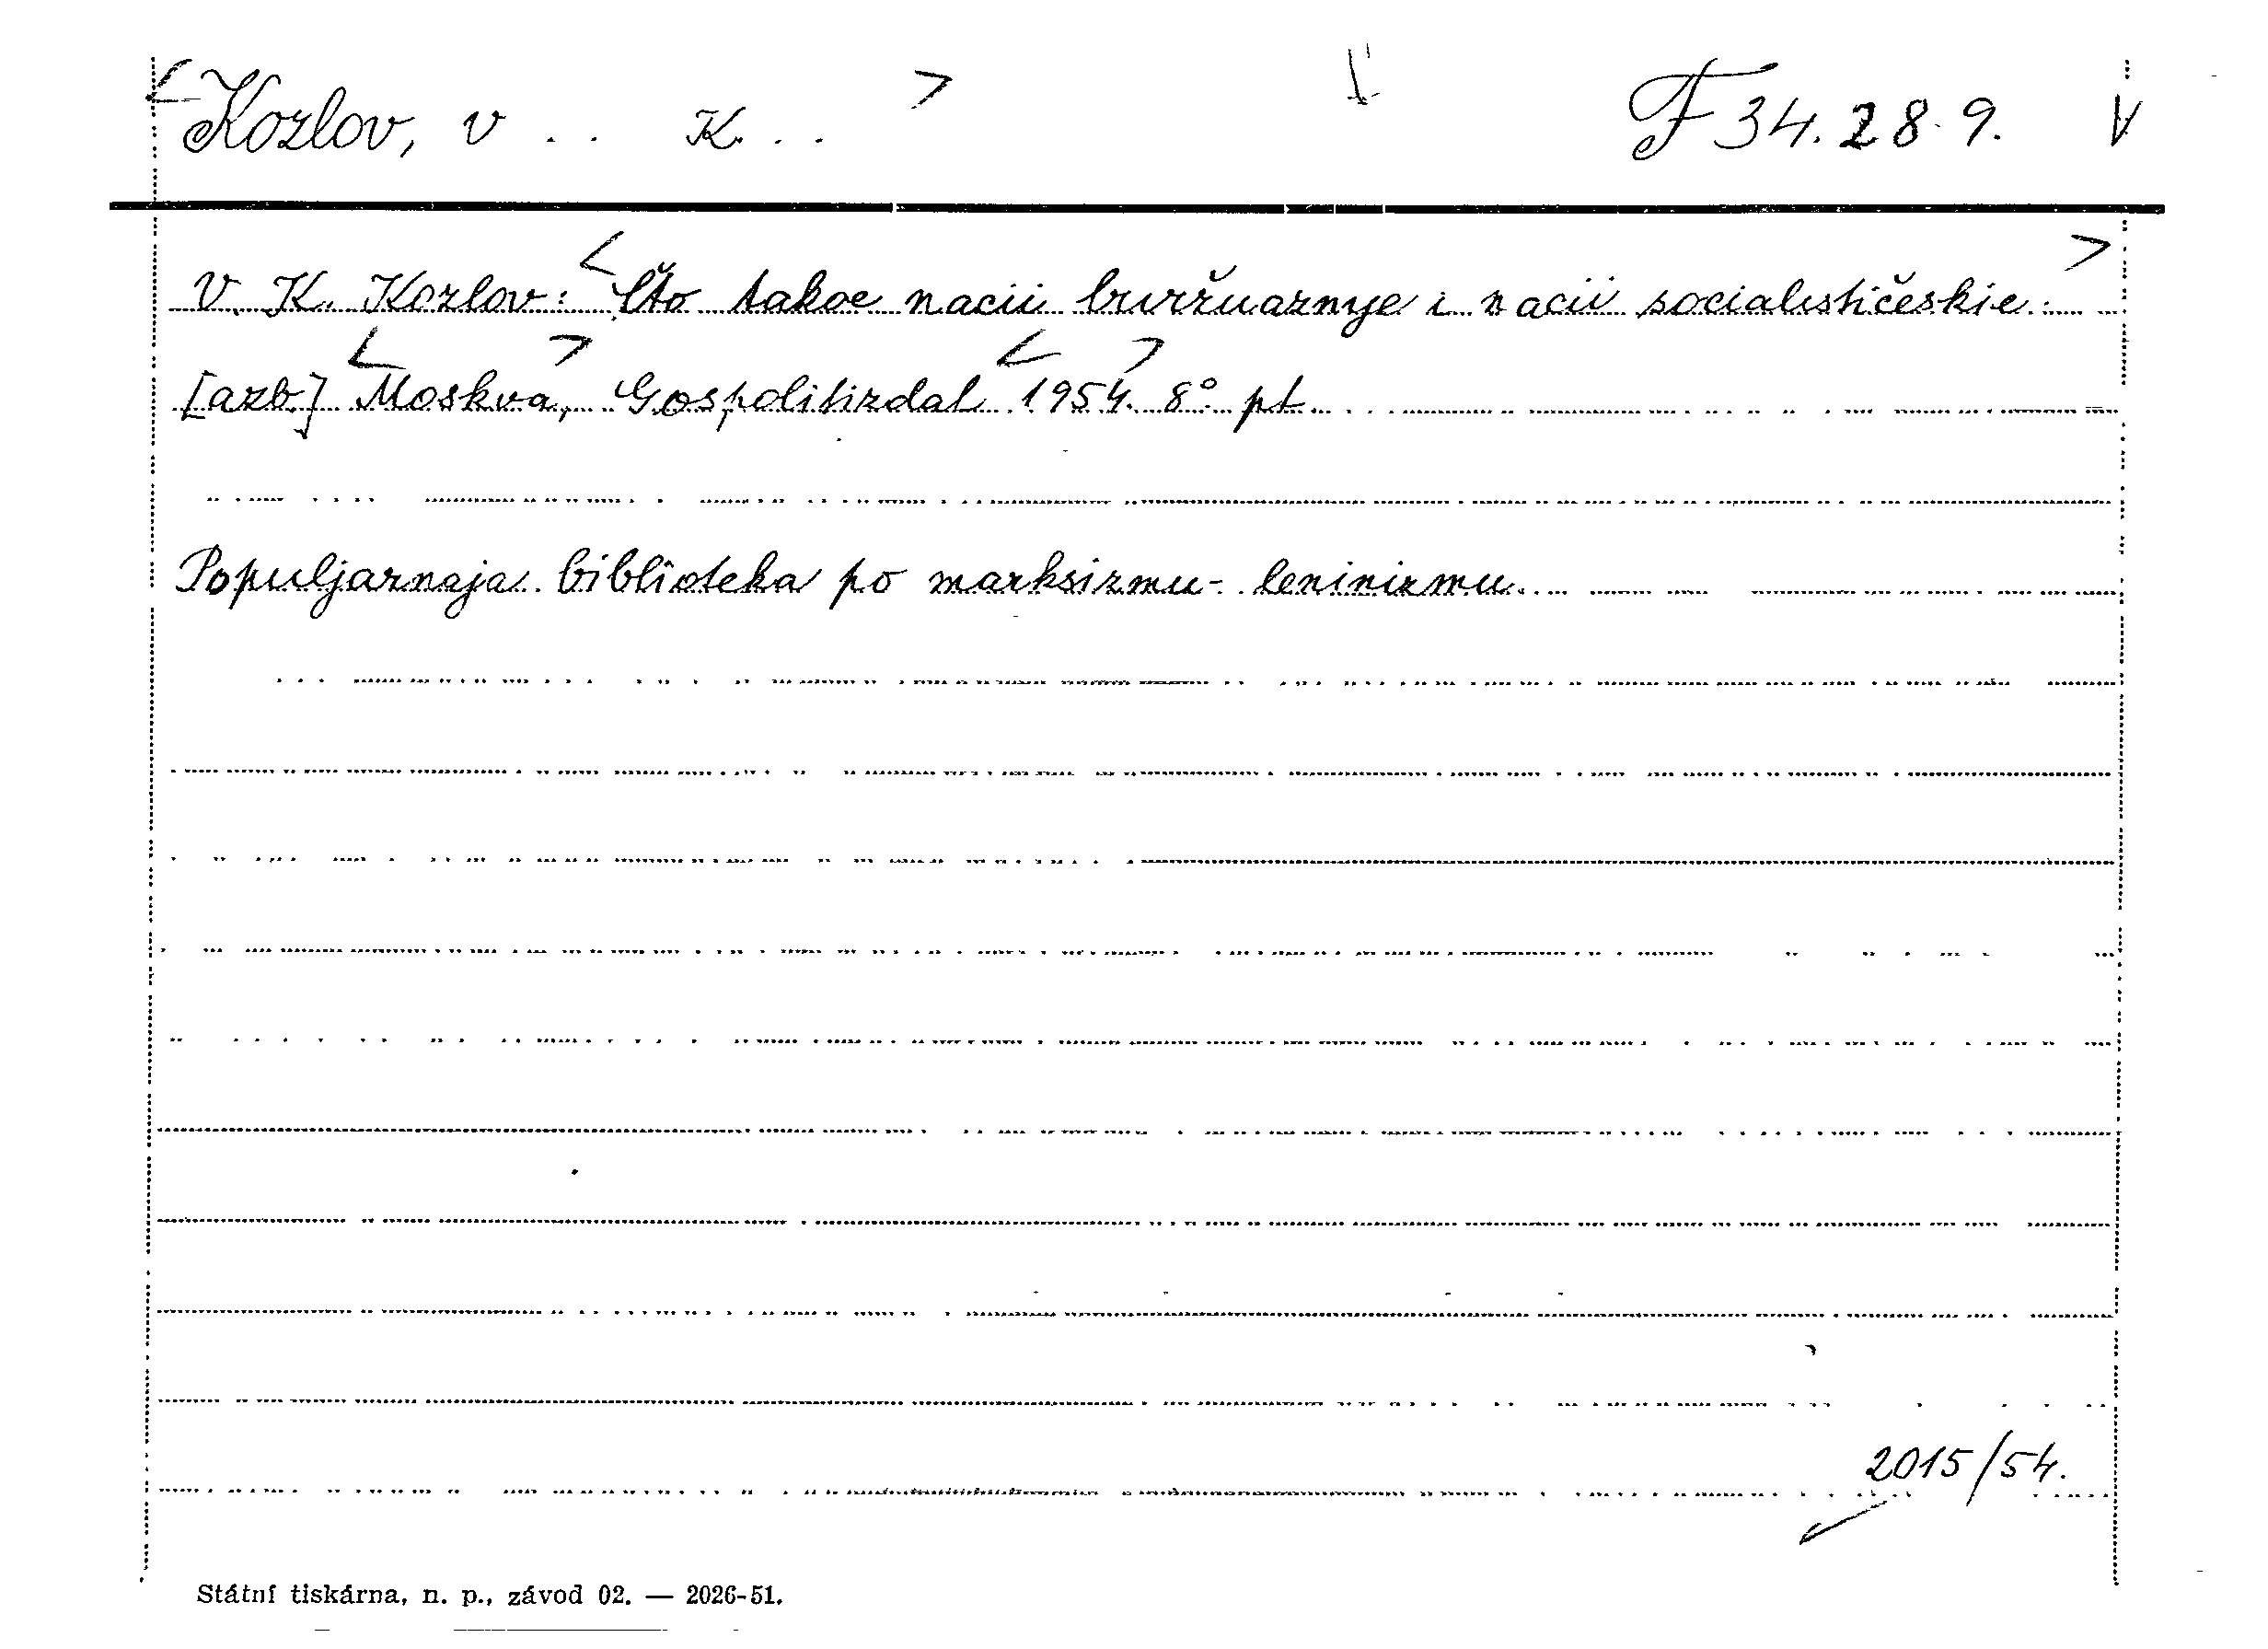 Kozlov, V . . K. . . F 34.289.
V. K. Kozlov: Što takoe nacii buržuaznye i nacii socialističeskie.
[azb.] Moskva, Gospolitizdat 1954. 8° pt.
Populjarnaja biblioteka po marksizmu-leninizmu.
2015/54.
Státní tiskárna, n. p., závod 02. — 2026-51.